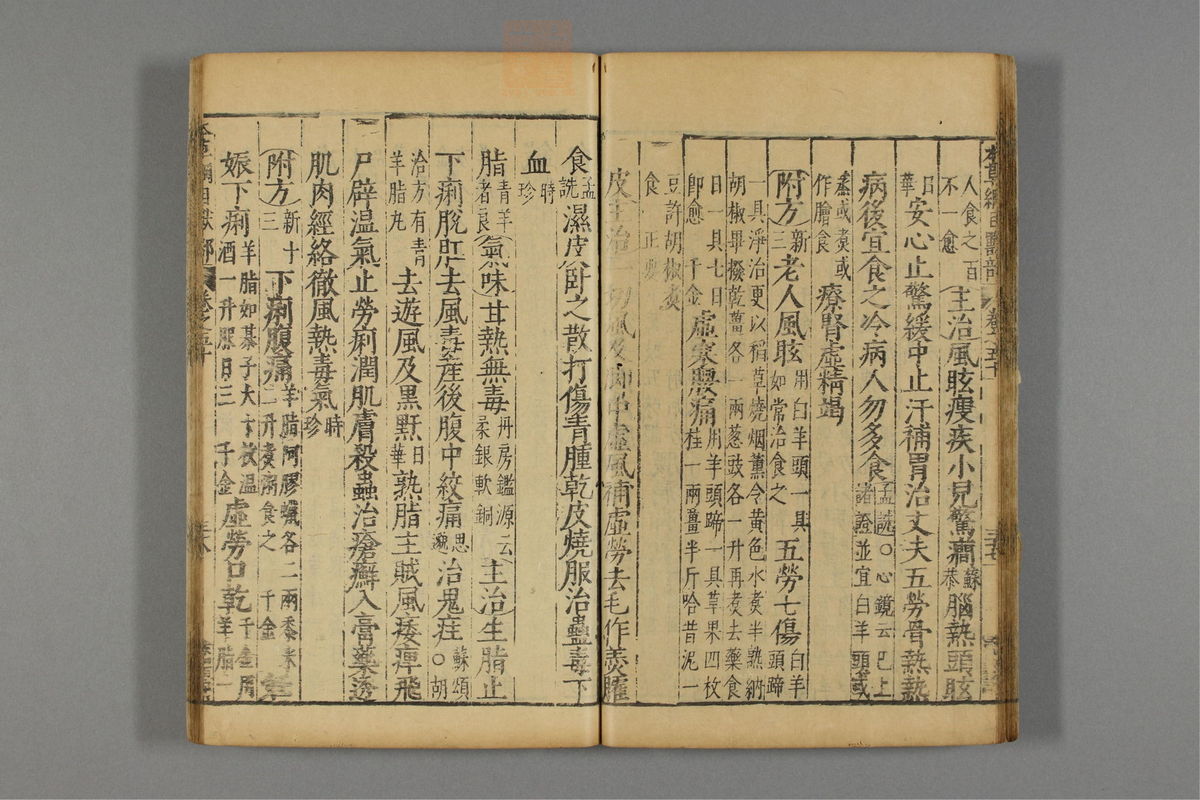 人食之百
不一愈
主治風眩瘦疾小兒驚癎
蘇恭
腦熱頭眩
日華
安心止驚緩中止汗補胃治丈夫五勞骨熱熱
病後宜食之冷病人勿多食
孟詵○心鏡云巳上
諸證並宜白羊頭或
蒸或煑或
作膾食
療腎虛精竭
附方
新三
老人風眩
用白羊頭一具
如常治食之
五勞七傷
白羊
頭蹄
一具淨治更以稻草燒烟薰令黄色水煑半熟納
胡椒畢撥乾薑各一兩葱豉各一升再煑去藥食
日一具七日
卽愈 千金
虛寒腰痛
用羊頭蹄一具草果四枚
桂一兩薑半斤哈昔泥一
豆許胡椒煑
食 正要
皮主治一切風及脚中虛風補虛勞去毛作羮臛
食
孟詵
濕皮臥之散打傷青腫乾皮燒服治蠱毒下
血
時珍
脂
青羊
者良
氣味甘熱無毒
丹房鑑源云
柔銀軟銅
主治生脂止
下痢脫肛去風毒産後腹中絞痛
思邈
治鬼疰
蘇頌
○胡
洽方有青
羊脂丸
去遊風及黒䵟
日華
熟脂主賊風痿痺飛
尸辟温氣止勞痢潤肌膚殺蟲治瘡癬入膏藥透
肌肉經絡徹風熱毒氣
時珍
附方
新十
三
下痢腹痛
羊脂阿膠蠟各二兩黍米
二升煑粥食之 千金
姙
娠下痢
羊脂如棊子大十枚温
酒一升服日三 千金
虛勞口乾
千金用
羊脂一